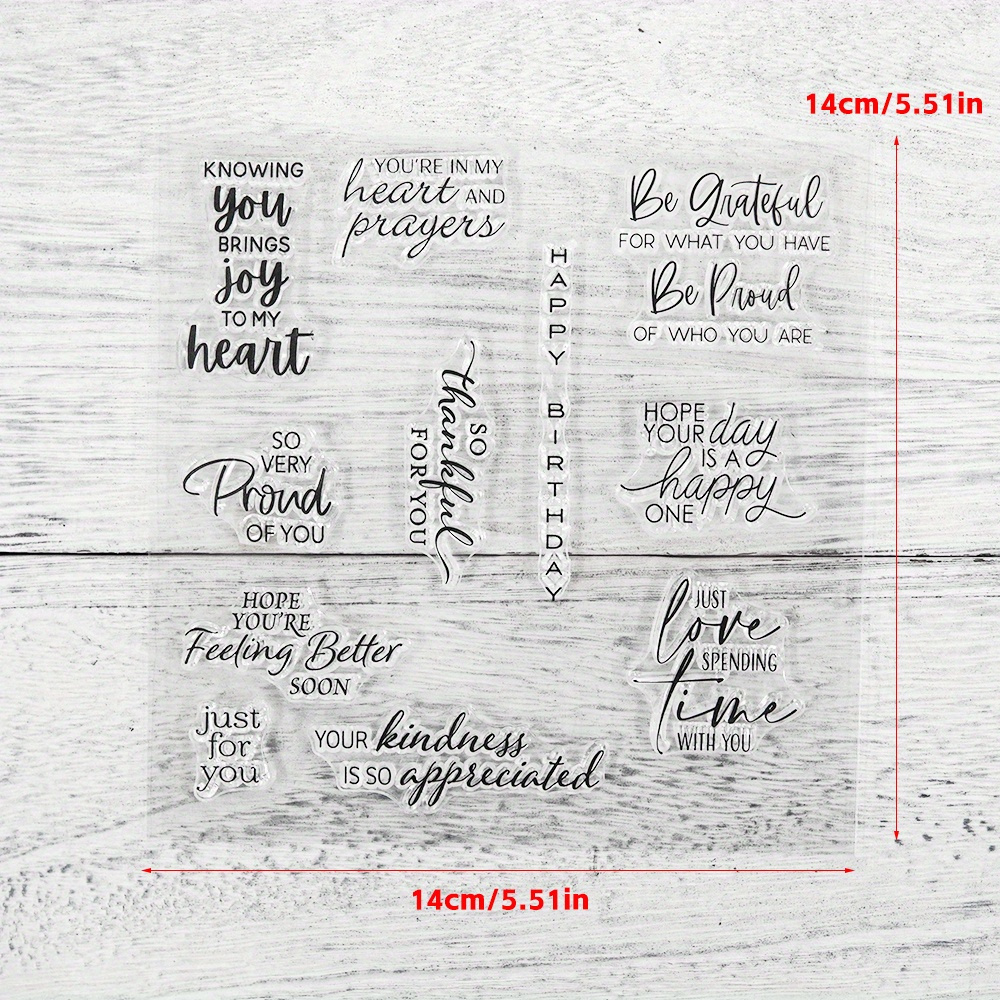 14cm/5.51in
KNOWING
you
BRINGS
joy
TO MY
heart
YOU'RE IN MY
heart AND
prayers
Be Grateful
FOR WHAT YOU HAVE
Be Proud
OF WHO YOU ARE
HAPPY BIRTHDAY
SO
thankful
FOR YOU
HOPE
YOUR day
IS A
happy
ONE
SO
VERY
Proud
OF YOU
HOPE
YOU'RE
Feeling Better
SOON
JUST
love
SPENDING
time
WITH YOU
just
for
you
YOUR kindness
IS SO appreciated
14cm/5.51in